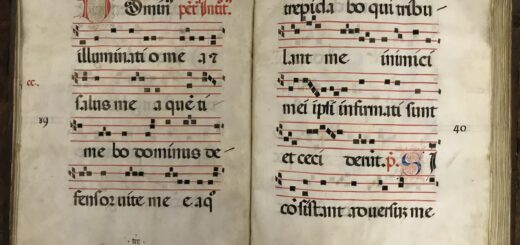 Domin⁹ p̃ẽ. Intit̃.
illuminati o me a et
salus me a quē ti
me bo dominus de
fensor vite me e a q̃
tre
cc.
39
trepida bo qui tribu
lant me inimici
mei ipsi infirmati sunt
et ceci derūt. p̃. S I
cōsistant aduersus me
40